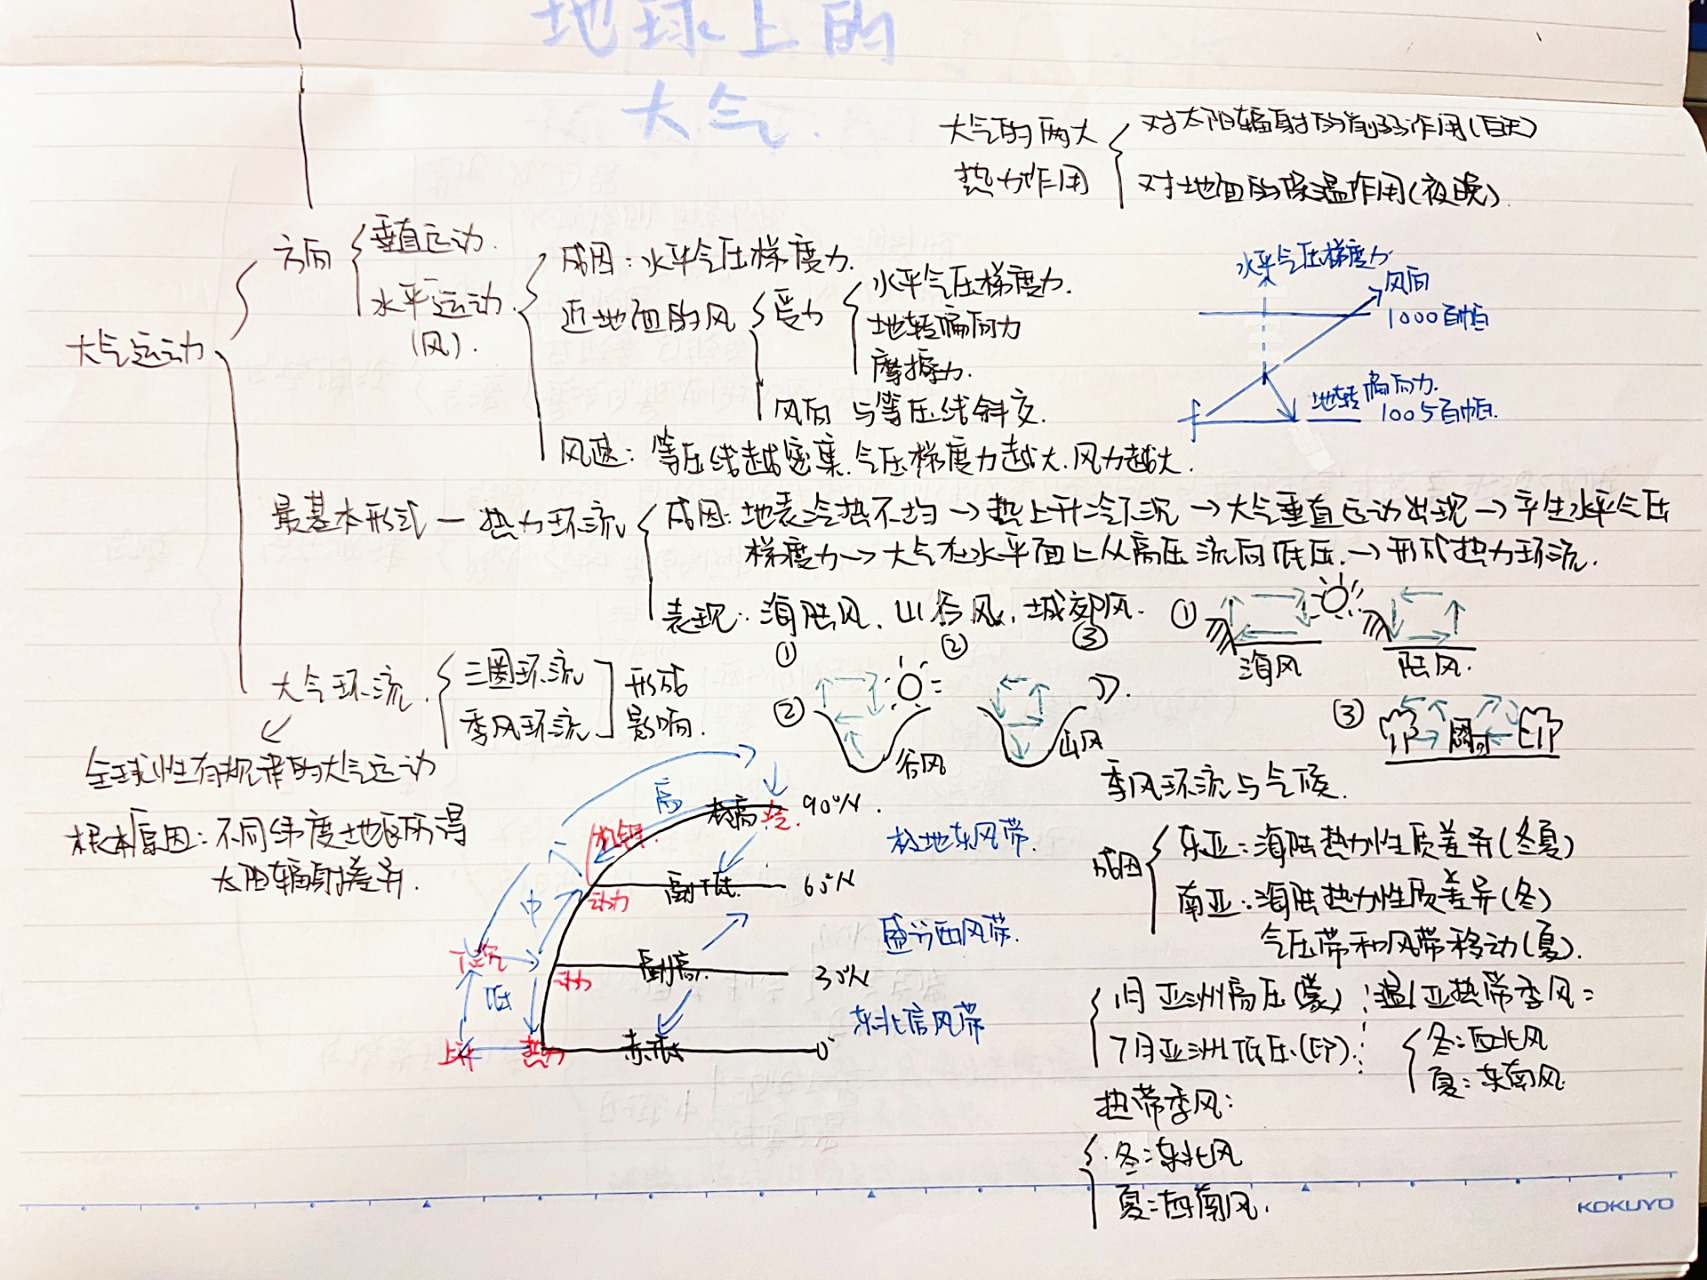 地球上的
大气.
大气的两大
热力作用
对太阳辐射的削弱作用(白天)
对地面的保温作用(夜晚).
大气运动
方向
垂直运动.
水平运动
(风).
成因:水平气压梯度力.
近地面的风
受力
水平气压梯度力.
地转偏向力
摩擦力.
风向 与等压线斜交.
风速:等压线越密集.气压梯度力越大.风力越大.
水平气压梯度力
风向
1000百帕
地转偏向力.
1005百帕.
f
最基本形式—热力环流
成因:地表冷热不均→热上升冷下沉→大气垂直运动出现→产生水平气压
梯度力→大气在水平面上从高压流向低压.→形成热力环流.
表现:海陆风、山谷风、城郊风.
① ② ③
①
海风
陆风.
②
谷风
山风
③
大气环流.
三圈环流
季风环流
形成
影响.
全球性有规律的大气运动
根本原因:不同纬度地区所得
太阳辐射差异.
高
极高 冷. 90°N.
极地东风带.
极锋
动力
副低. 60°N
中
盛行西风带.
下沉
动力
副高. 30°N
低
东北信风带
上升 热力 赤低 0°
季风环流与气候.
成因
东亚:海陆热力性质差异(冬夏)
南亚:海陆热力性质差异(冬)
气压带和风带移动(夏).
1月亚洲高压(蒙)
7月亚洲低压.(印).
温/亚热带季风:
冬:西北风
夏:东南风
热带季风:
冬:东北风
夏:西南风.
KOKUYO